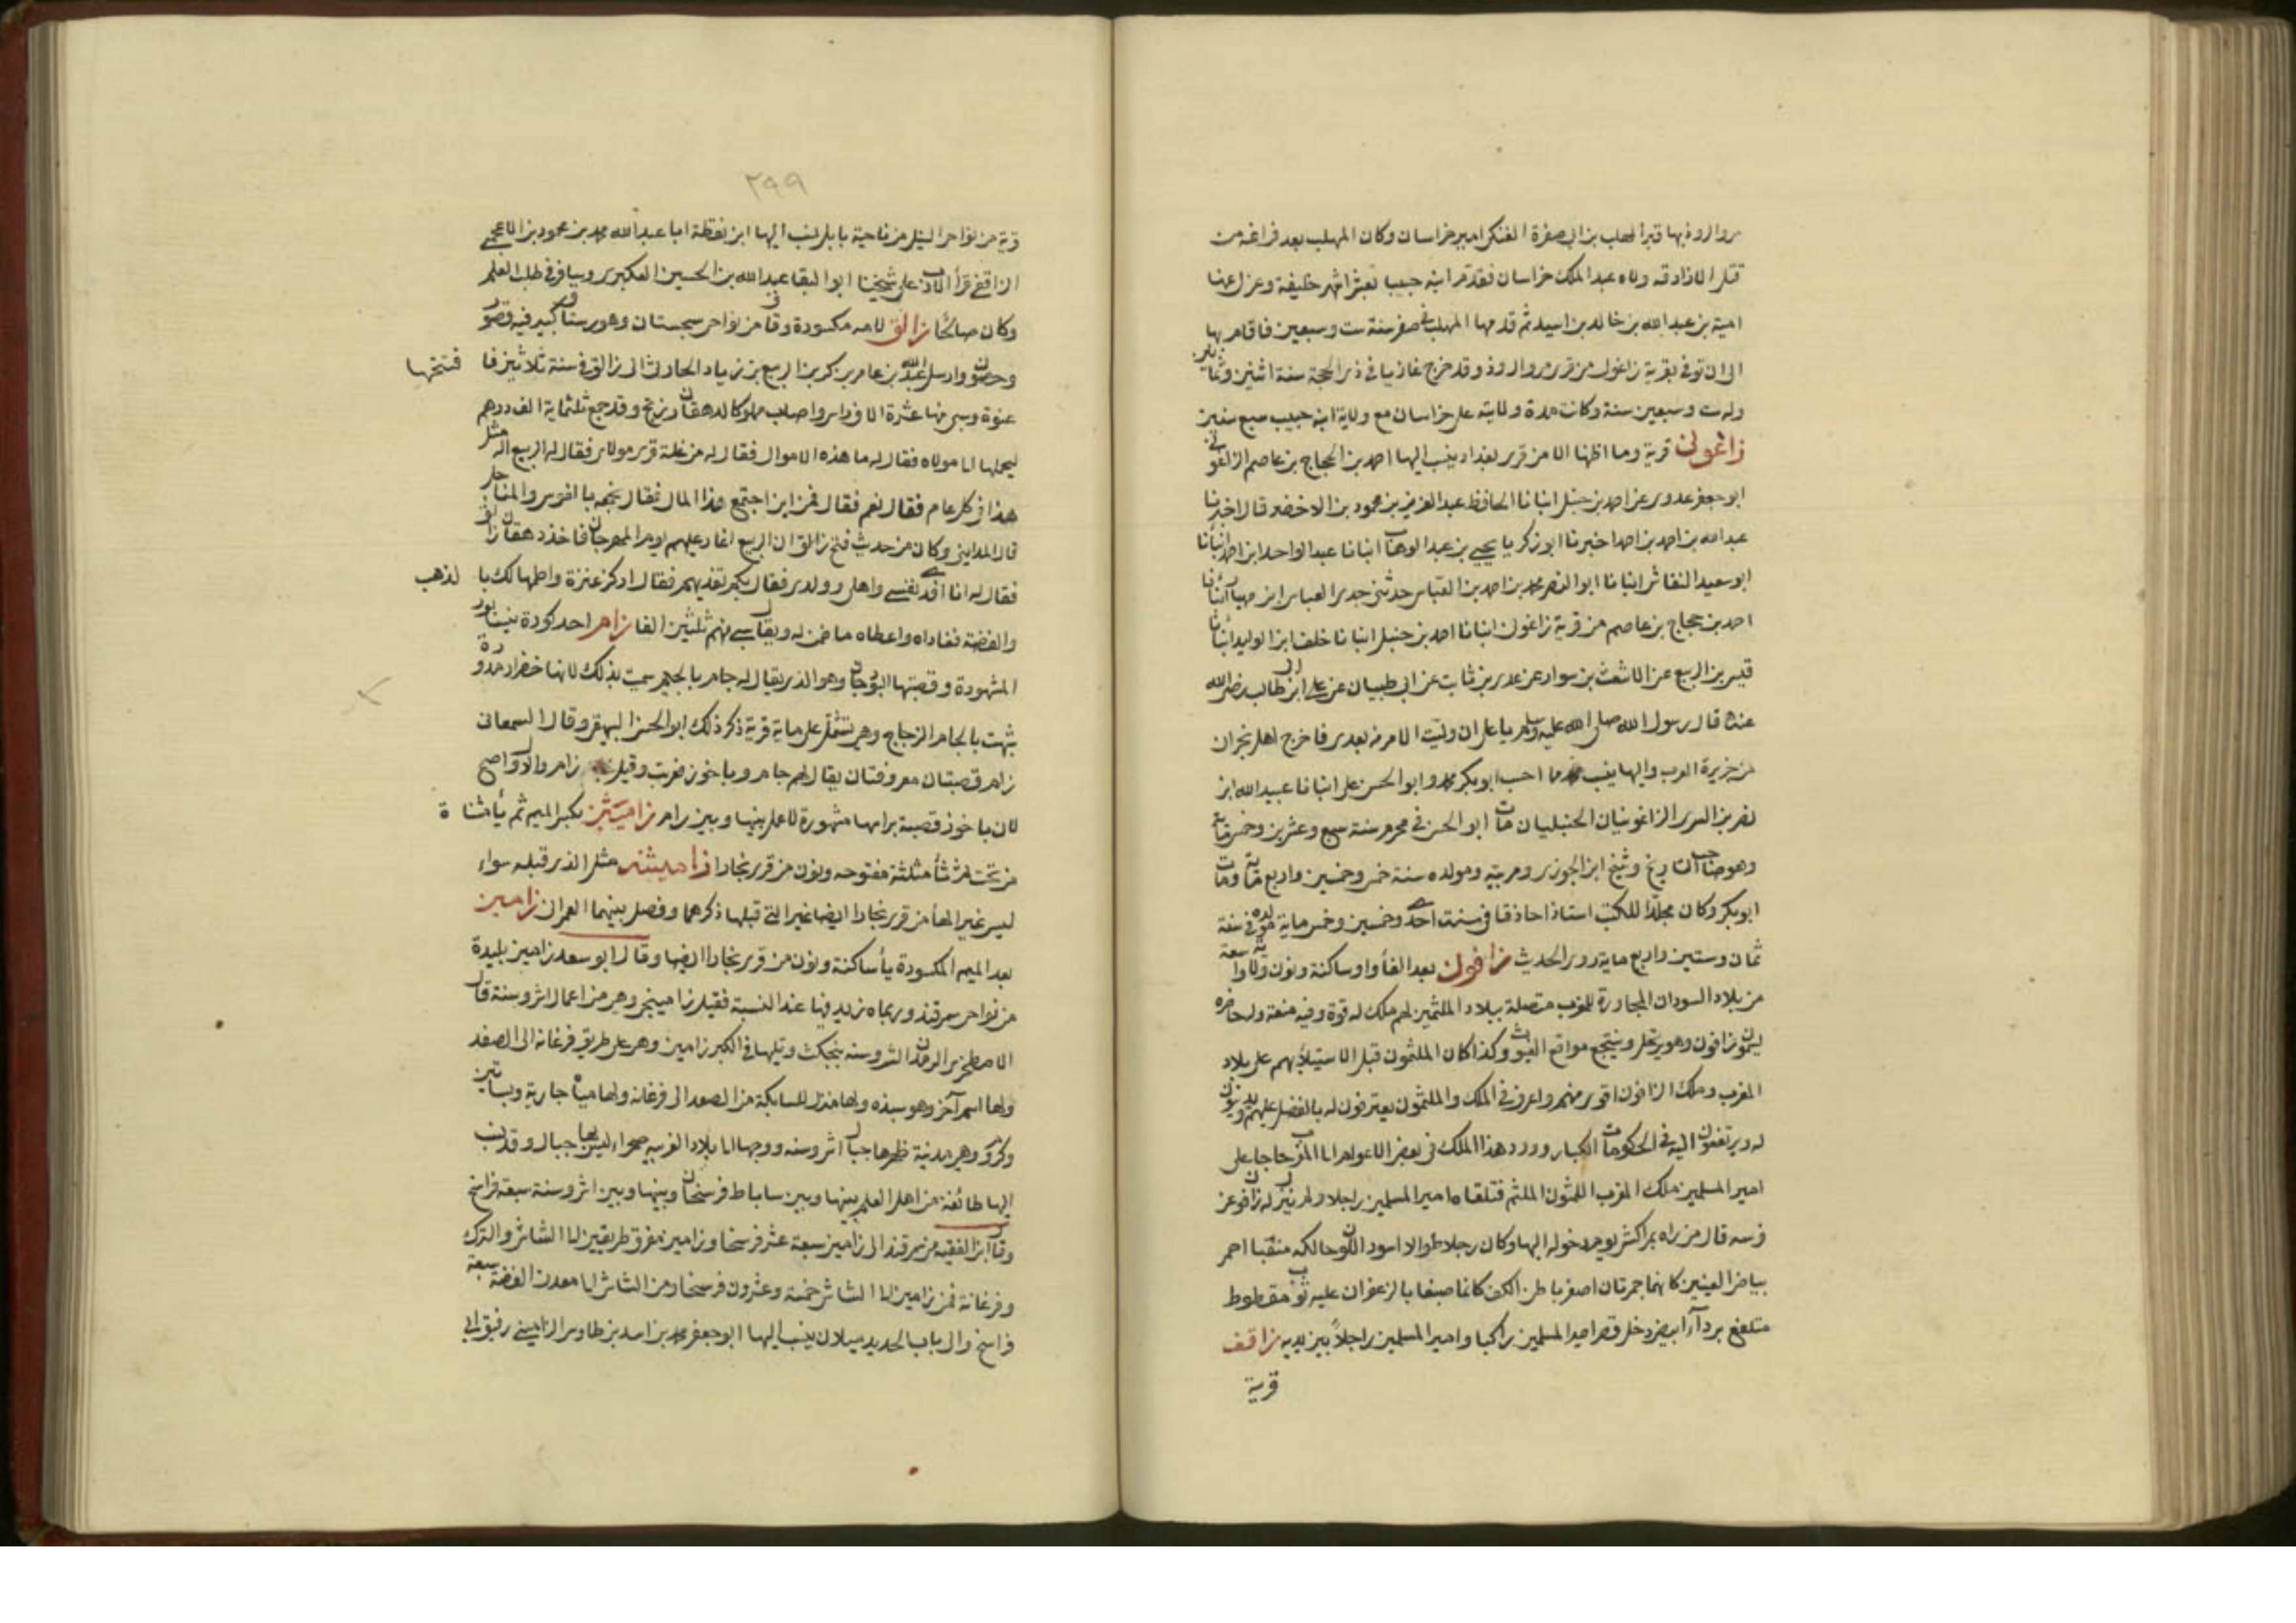 مروالروذ بها قبر المهلب بن ابي صفرة العتكي امير خراسان وكان المهلب بعد فراغه من
قتل الازارقه ولاه عبد الملك خراسان فقدم ابنه حبيبا بعشر اشهر خليفة وعزل عنها
امية بن عبد الله بن خالد بن اسيد ثم قدمها المهلب في صفر سنة ست وسبعين فاقام بها
الى ان توفي بقرية زاغول من قرى مروالروذ وقد خرج غازيا في ذي الحجة سنة اثنين وثمانين
وله ست وسبعين سنة وكانت مدة ولايته على خراسان مع ولاية ابنه حبيب سبع سنين
زاغونى قرية وما اظنها الا من قرى بغداد ينسب اليها احمد بن الحجاج بن عاصم الزاغوني
ابو جعفر يروى عن احمد بن حنبل انبانا الحافظ عبد العزيز بن محمود بن الاخضر قال اخبرنا
عبد الله بن احمد بن احمد اخبرنا ابو زكريا يحيى بن عبد الوهاب انبانا عبد الواحد ابن احمد انبأنا
ابو سعيد النقاش انبانا ابو النصر محمد بن احمد بن العباس حدثني جدي العباس ابن مهيار انبأنا
احمد بن حجاج بن عاصم من قرية زاغون انبانا احمد بن حنبل انبانا خلف ابن الوليد انبأنا
قيس بن الربيع عن الاشعث بن سوار عن عدي بن ثابت عن ابي ظبيان عن علي ابن ابي طالب رضي الله
عنه قال رسول الله صلى الله عليه وسلم يا علي ان وليت الامر من بعدي فاخرج اهل نجران
من جزيرة العرب واليها ينسب محمد ما احسب ابو بكر محمد وابو الحسن علي انبانا عبيد الله ابن
نصر بن السري الزاغونيان الحنبليان مات ابو الحسن في محرم سنة سبع وعشرين وخمسماية
وهو صاحب التاريخ وشيخ ابن الجوزي ومربيه ومولده سنة خمس وخمسين واربع ماية ومات
ابو بكر وكان مجلدا للكتب استاذا حاذقا في سنت احدى وخمسين وخمس ماية مولده في سنة
ثمان وستين واربع ماية روى الحديث زافون بعد الفأ واو ساكنة ونون ولاية واسعة
من بلاد السودان المجاورة للمغرب متصلة ببلاد الملثمين لهم ملك له قوة وفيه منعة وله حاضرة
يسمون زافون وهو يرتحل وينتجع مواقع الغيوث وكذا كان الملثمون قبل الاستيلايهم على بلاد
المغرب وملك الزافون اقوى منهم واعرف في الملك والملثمون يعترفون له بالفضل عليهم ويدينون
له ويرتفعون اليه في الحكومات الكبار وورد هذا الملك في بعض الاعوام الى المغرب حاجا على
امير المسلمين ملك المغرب اللمتون الملثم فتلقاه امير المسلمين راجلا ولم ينزل له زافون عن
فرسه قال من راه بمراكش يوم دخوله اليها وكان رجلا طوالا اسود اللون حالكه منقبا احمر
بياض العينين كانهما جمرتان اصفر باطن الكف كانما صبغا بالزعفران عليه ثوب مقطوط
متلفع بردآء ابيض دخل قصر امير المسلمين راكبا وامير المسلمين راجلاً بين يديه زاقف
قرية
٢٩٩
قرية من نواحي النيل من ناحية بابل نسب اليها ابن نقطة ابا عبد الله محمد بن محمود بن الاعجمي
الزاقفي قرأ الادب على شيخنا ابو البقا عبد الله بن الحسين العكبري وسافر في طلب العلم
وكان صالحا زالق لامه مكسورة وقاف من نواحي سجستان وهو رستاق كبير فيه قصور
وحصون وارسل عبد الله بن عامر بن كريز الربيع بن زياد الحارثي الى زالق في سنة ثلاثين فافتتحها
عنوة وسبى منها عشرة الاف راس واصاب مملوكا لدهقان زرنج وقد جمع ثلثماية الف درهم
ليحملها الى مولاه فقال له ما هذه الاموال فقال له من غلة قرى مولاى فقال له الربيع اله مثل
هذا في كل عام فقال نعم فقال فمن اين اجتمع هذا المال فقال يجمعه بالفوس والمناجل
قال المدايني وكان من حديث فتح زالق ان الربيع اغار عليهم يوم المهرجان فاخذ دهقان زالق
فقال له انا افدي نفسي واهلي وولدي فقال بكم تفديهم فقال اركز عنزة واطمها لك بالذهب
والفضة ففاداه واعطاه ما ضمن له ويقال سبى منهم ثلثين الفا زام احد كورة نيسابور
المشهورة وقصبتها البوزجان وهو الذي يقال له جام بالجيم سميت بذلك لانها خضرا مدورة
شبهت بالجام الزجاج وهي تشتمل على ماية قرية ذكر ذلك ابو الحسن البيهقي وقال السمعاني
زام قصبتان معروفتان يقال لهم جام وباخرز فعربت وقيل زام والاول اصح
لان باخرز قصبة براسها مشهورة لا عمل بينها وبين زام زاميثن بكسر الميم ثم يأ مثناة
من تحت ثم ثأ مثلثة مفتوحه ونون من قرى بخارا زاميثنه مثل الذي قبله سواء
ليس غير الهأ من قرى بخارا ايضا غير التي قبلها ذكرهما وفصل بينهما العمراني زامين
بعد الميم المكسورة يأ ساكنة ونون من قرى بخارا ايضا وقال ابو سعد زامين بليدة
من نواحي سمرقند وربما زيد فيها عند النسبة فقيل زامينجي وهي من اعمال اشروسنة قال
الاصطخري اكبر مدن اشروسنه بنجكث وتليها في الكبر زامين وهي على طريق فرغانة الى الصغد
ولها اسم آخر وهو سبذه ولها منزل للسابكة من الصغد الى فرغانه ولها مياه جارية وبساتين
وكروم وهي مدينة ظهرها جبال اشروسنه ووجهها الى بلاد الغزيه صحراء ليس بها جبال وقد نسب
اليها طائفة من اهل العلم بينها وبين ساباط فرسخان وبينها وبين اشروسنة سبعة فراسخ
وقال ابن الفقيه من سمرقند الى زامين سبعة عشر فرسخا وزامين مفرق طريقين الى الشاش والترك
وفرغانة فمن زامين الى الشاش خمسة وعشرون فرسخا ومن الشاش الى معدن الفضة سبعة
فراسخ والى باب الحديد ميلان ينسب اليها ابو جعفر محمد بن اسد بن طاوس الزاميني رفيق ابي